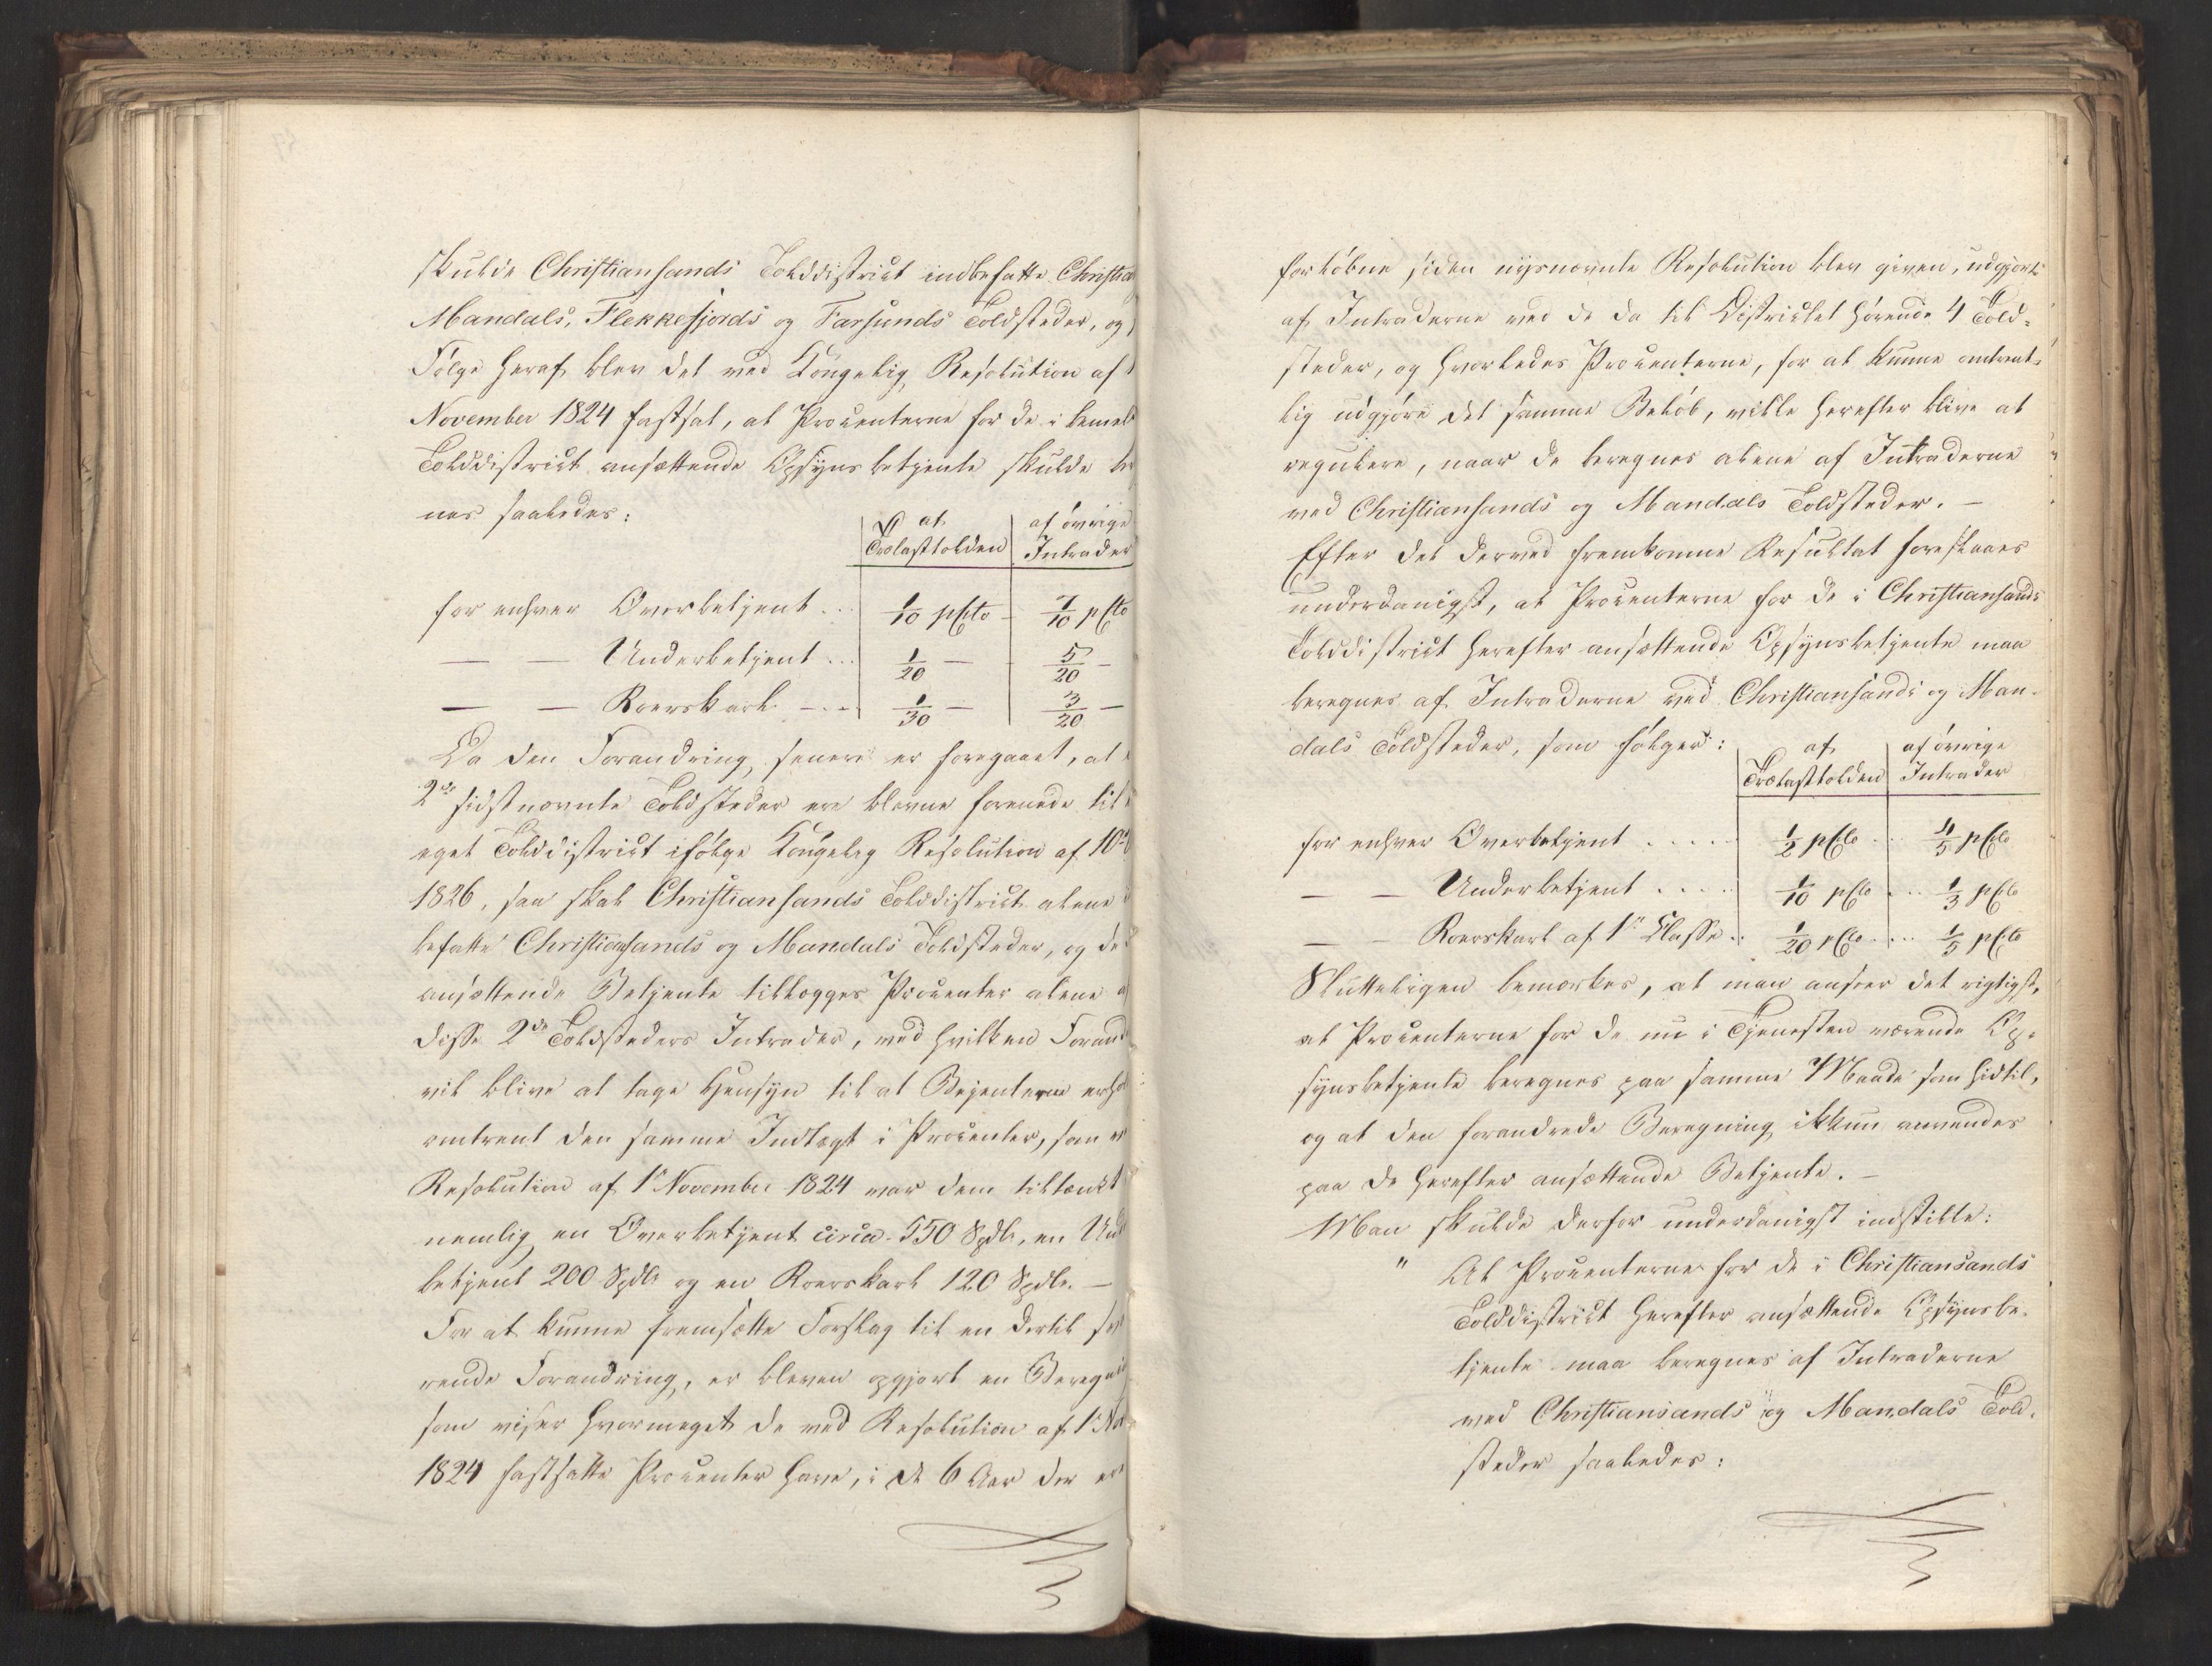 skulde Christiansands Tolddistrict indbefatte Christia
Mandals, Flekkefjords og Farsunds Toldsteder, og
Følge heraf blev det ved Kongelig Resolution af 1
November 1824 fastsat, at Procenterne for de i bemel
Tolddistrict ansættende Opsynsbetjente skulde be
nes saaledes:
af Trælasttolden | af øvrige Intrader
for enhver Overbetjent ... 1/10 pCto 7/10 pCto
— — Underbetjent ... 1/20 — 5/20 —
— — Roerskarl ... 1/30 — 3/20 —
Da den Forandring senere er foregaaet, at
2de sidstnævnte Toldsteder ere blevne forenede til
eget Tolddistrict ifølge Kongelig Resolution af 10
1826, saa skal Christiansands Tolddistrict alene
befatte Christiansands og Mandals Toldsteder, og de
ansættende Betjente tillægges Procenter alene a
disse 2de Toldsteders Intrader, ved hvilken Forand
vil blive at tage Hensyn til at Bejenterne erhol
omtrent den samme Indtægt i Procenter, som ve
Resolution af 1ste November 1824 var dem tiltænkt
nemlig en Overbetjent circa 550 Spdlr, en Und
betjent 200 Spdlr og en Roerskarl 120 Spdlr. —
For at kunne fremsætte Forslag til en dertil
rende Forandring, er bleven opgjort en Beregni
som viser hvormeget de ved Resolution af 1 Nov
1824 fastsatte Procenter have, i de 6 Aar der ere
forløbne siden nysnævnte Resolution blev given, udgjort
af Intraderne ved de da til Districtet hørende 4 Told-
steder, og hvorledes Procenterne, for at kunne omtrent-
lig udgjøre det samme Beløb, ville herefter blive at
regulere, naar de beregnes alene af Intraderne
ved Christiansands og Mandals Toldsteder. —
Efter det derved fremkomne Resultat foreslaaes
underdanigst, at Procenterne for de i Christiansands
Tolddistrict herefter ansættende Opsynsbetjente maa
beregnes af Intraderne ved Christiansands og Man-
dals Toldsteder, som følger:
af Trælasttolden | af øvrige Intrader
for enhver Overbetjent ..... 1/2 pCto .. 4/5 pCto
— — Underbetjent ..... 1/10 pCto ... 1/3 pCto
— — Roerskarl af 1ste Classe .. 1/20 pCto ... 1/5 pCto
Slutteligen bemærkes, at man anseer det rigtigst,
at Procenterne for de nu i Tjenesten værende Op-
synsbetjente beregnes paa samme Maade som hidtil,
og at den forandrede Beregning ikkun anvendes
paa de herefter ansættende Betjente. —
Man skulde derfor underdanigst indstille:
" At Procenterne for de i Christiansands
Tolddistrict herefter ansættende Opsynsbe-
tjente maa beregnes af Intraderne
ved Christiansands og Mandals Told-
steder saaledes: